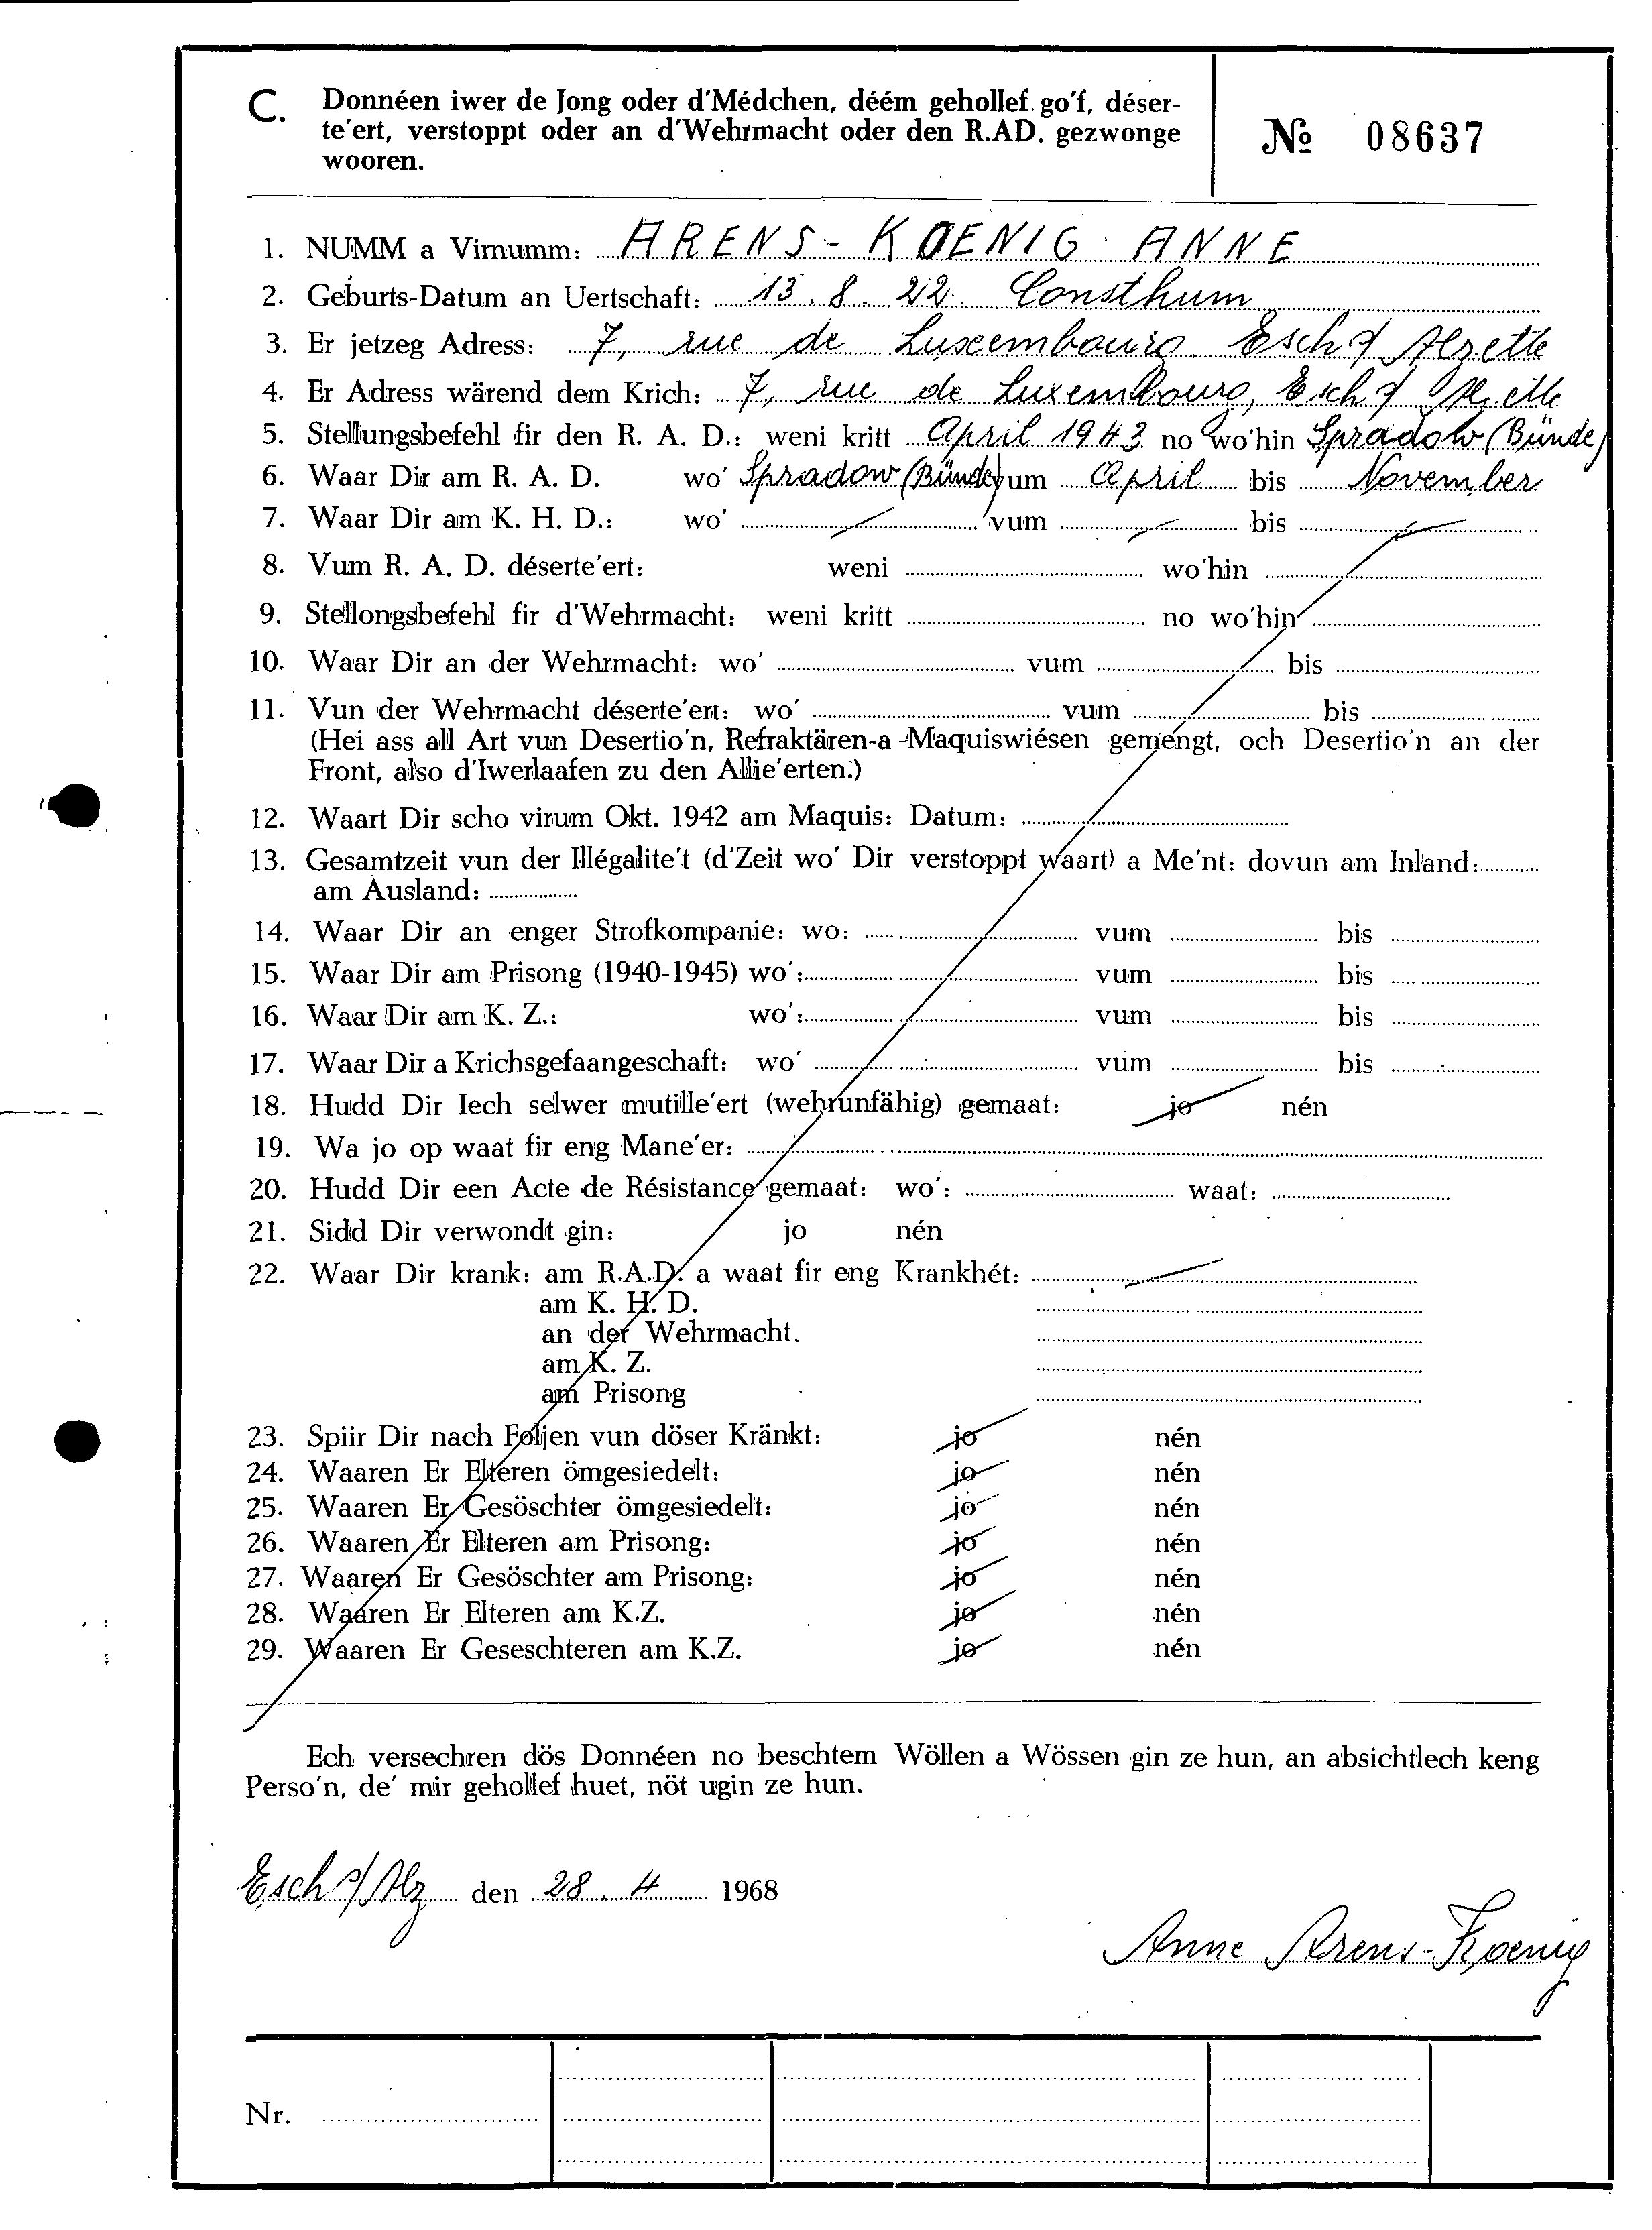 C. Donnéen iwer de Jong oder d'Médchen, déém gehollef go'f, déser-
te'ert, verstoppt oder an d'Wehrmacht oder den R.AD. gezwonge
wooren.
№ 08637
1. NUMM a Virnumm: ARENS-KOENIG ANNE
2. Geburts-Datum an Uertschaft: 13.8.22. Consthum
3. Er jetzeg Adress: 7, rue de Luxembourg Esch s/ Alzette
4. Er Adress wärend dem Krich: 7, rue de Luxembourg, Esch s/ Alzette
5. Stellungsbefehl fir den R. A. D.: weni kritt April 1943 no wo'hin Spradow (Bünde)
6. Waar Dir am R. A. D. wo' Spradow (Bünde) vum April bis November
7. Waar Dir am K. H. D.: wo' vum bis
8. Vum R. A. D. déserte'ert: weni wo'hin
9. Stellongsbefehl fir d'Wehrmacht: weni kritt no wo'hin
10. Waar Dir an der Wehrmacht: wo' vum bis
11. Vun der Wehrmacht déserte'ert: wo' vum bis
(Hei ass all Art vun Desertio'n, Refraktären-a -Maquiswiésen gemengt, och Desertio'n an der
Front, also d'Iwerlaafen zu den Allie'erten.)
12. Waart Dir scho virum Okt. 1942 am Maquis: Datum:
13. Gesamtzeit vun der Illégalite't (d'Zeit wo' Dir verstoppt waart) a Me'nt: dovun am Inland:
am Ausland:
14. Waar Dir an enger Strofkompanie: wo: vum bis
15. Waar Dir am Prisong (1940-1945) wo': vum bis
16. Waar Dir am K. Z.: wo': vum bis
17. Waar Dir a Krichsgefaangeschaft: wo' vum bis
18. Hudd Dir Iech selwer mutille'ert (wehrunfähig) gemaat: jo nén
19. Wa jo op waat fir eng Mane'er:
20. Hudd Dir een Acte de Résistance gemaat: wo': waat:
21. Sidd Dir verwondt gin: jo nén
22. Waar Dir krank: am R.A.D. a waat fir eng Krankhét:
am K. H. D.
an der Wehrmacht.
am K. Z.
am Prisong
23. Spiir Dir nach Foljen vun döser Kränkt: jo nén
24. Waaren Er Elteren ömgesiedelt: jo nén
25. Waaren Er Gesöschter ömgesiedelt: jo nén
26. Waaren Er Elteren am Prisong: jo nén
27. Waaren Er Gesöschter am Prisong: jo nén
28. Waaren Er Elteren am K.Z. jo nén
29. Waaren Er Geseschteren am K.Z. jo nén
Ech versechren dös Donnéen no beschtem Wöllen a Wössen gin ze hun, an absichtlech keng
Perso'n, de' mir gehollef huet, nöt ugin ze hun.
Esch s/ Alz den 28. 4 1968
Anne Arens-Koenig
Nr.